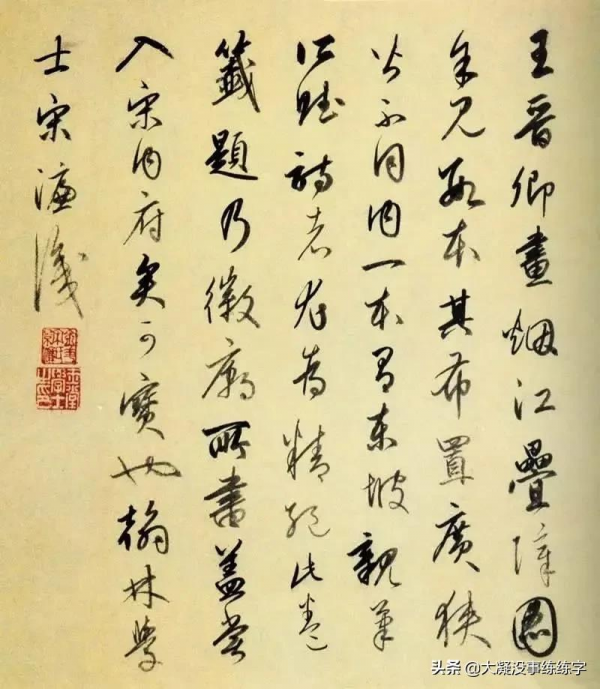 王晋卿畫烟江疊障圖
余見數本其布置廣狹
皆不同內一本有東坡親筆
所賦詩者尤為精絕此卷
籤題乃徽廟所書蓋嘗
入宋內府矣可寶也翰林學
士宋濂識
头条 @大凝没事练练字